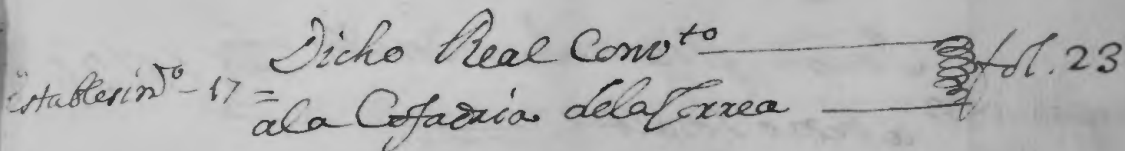 Dicho Real Conv^to fol. 23
Establesim^to - 17 =
a la Cofadria dela Correa